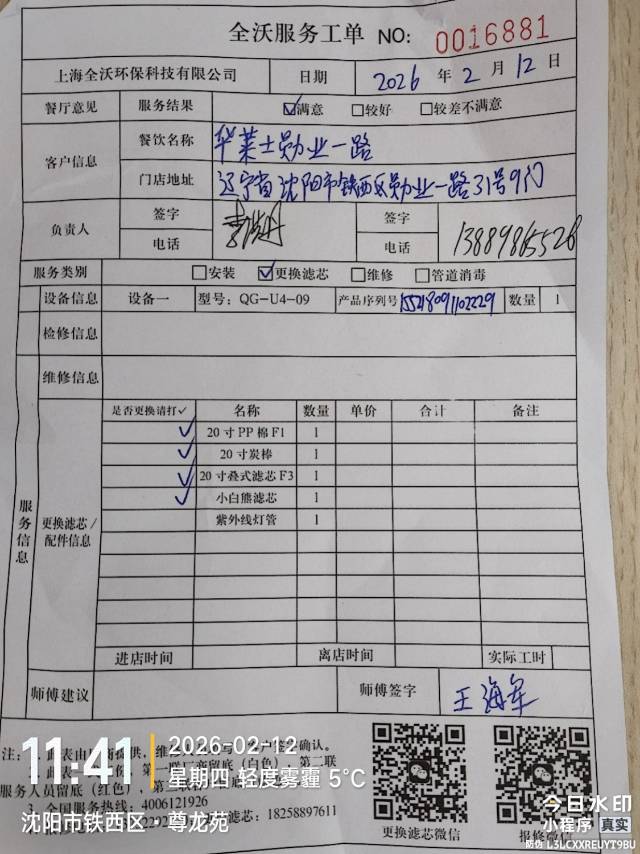 全沃服务工单 NO: 0016881
上海全沃环保科技有限公司 日期 2026 年 2 月 12 日
餐厅意见 服务结果 ☑满意 □较好 □较差不满意
客户信息 餐饮名称 华莱士勋业一路
门店地址 辽宁省沈阳市铁西区勋业一路31号9门
负责人 签字 签字
电话 电话 13889865528
服务类别 □安装 ☑更换滤芯 □维修 □管道消毒
设备信息 设备一 型号: QG-U4-09 产品序列号 155218091102229 数量 1
检修信息
维修信息
服务信息
更换滤芯/配件信息
是否更换请打✓ 名称 数量 单价 合计 备注
✓ 20寸PP棉F1 1
✓ 20寸炭棒 1
✓ 20寸叠式滤芯F3 1
✓ 小白熊滤芯 1
紫外线灯管 1
进店时间 离店时间 实际工时
师傅建议 师傅签字 王海军
注: 1. 此表由
确认。
第一联厂商留底(白色), 第二联
服务人员留底(红色), 第三联
3. 全国服务热线: 4006121926
18258897611
更换滤芯微信 报修微信
11:41 2026-02-12
星期四 轻度雾霾 5℃
沈阳市铁西区·尊龙苑
今日水印
小程序 真实
防伪 L3LCXXREUYT9BU